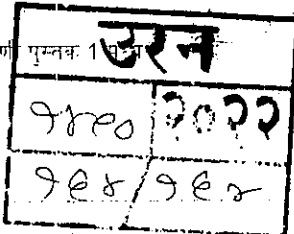 णी पुस्तक 1
उरन
१४९० २०२२
१६४/१६४